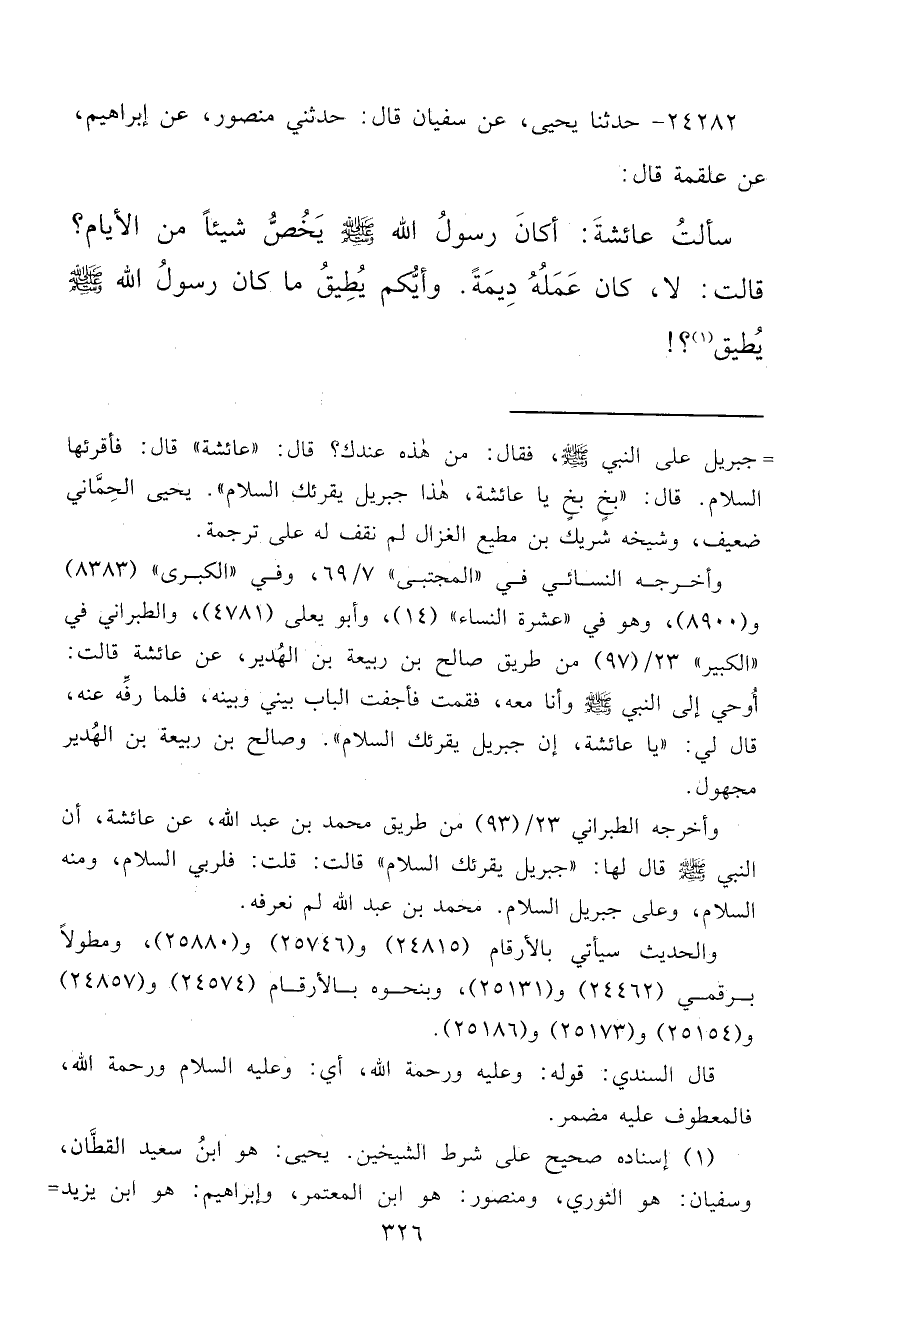 ٢٤٢٨٢- حدثنا يحيى، عن سفيان قال: حدثني منصور، عن إبراهيم،
عن علقمة قال:
سألتُ عائشةَ: أكانَ رسولُ الله ﷺ يَخُصُّ شيئاً من الأيام؟
قالت: لا، كان عَمَلُهُ دِيمَةً. وأيُّكم يُطِيقُ ما كان رسولُ الله ﷺ
يُطيق(١)؟!
= جبريل على النبي ﷺ، فقال: من هٰذه عندك؟ قال: «عائشة» قال: فأقرئها
السلام. قال: «بخٍ بخٍ يا عائشة، هٰذا جبريل يقرئك السلام». يحيى الحِمَّاني
ضعيف، وشيخه شريك بن مطيع الغزال لم نقف له على ترجمة.
وأخرجه النسائي في «المجتبى» ٦٩/٧، وفي «الكبرى» (٨٣٨٣)
و(٨٩٠٠)، وهو في «عشرة النساء» (١٤)، وأبو يعلى (٤٧٨١)، والطبراني في
«الكبير» ٢٣/(٩٧) من طريق صالح بن ربيعة بن الهُدير، عن عائشة قالت:
أُوحي إلى النبي ﷺ وأنا معه، فقمت فأجفت الباب بيني وبينه، فلما رفِّه عنه،
قال لي: «يا عائشة، إن جبريل يقرئك السلام». وصالح بن ربيعة بن الهُدير
مجهول.
وأخرجه الطبراني ٢٣/(٩٣) من طريق محمد بن عبد الله، عن عائشة، أن
النبي ﷺ قال لها: «جبريل يقرئك السلام» قالت: قلت: فلربي السلام، ومنه
السلام، وعلى جبريل السلام. محمد بن عبد الله لم نعرفه.
والحديث سيأتي بالأرقام (٢٤٨١٥) و(٢٥٧٤٦) و(٢٥٨٨٠)، ومطولاً
برقمي (٢٤٤٦٢) و(٢٥١٣١)، وبنحوه بالأرقام (٢٤٥٧٤) و(٢٤٨٥٧)
و(٢٥١٥٤) و(٢٥١٧٣) و(٢٥١٨٦).
قال السندي: قوله: وعليه ورحمة الله، أي: وعليه السلام ورحمة الله،
فالمعطوف عليه مضمر.
(١) إسناده صحيح على شرط الشيخين. يحيى: هو ابنُ سعيد القطَّان،
وسفيان: هو الثوري، ومنصور: هو ابن المعتمر، وإبراهيم: هو ابن يزيد=
٣٢٦